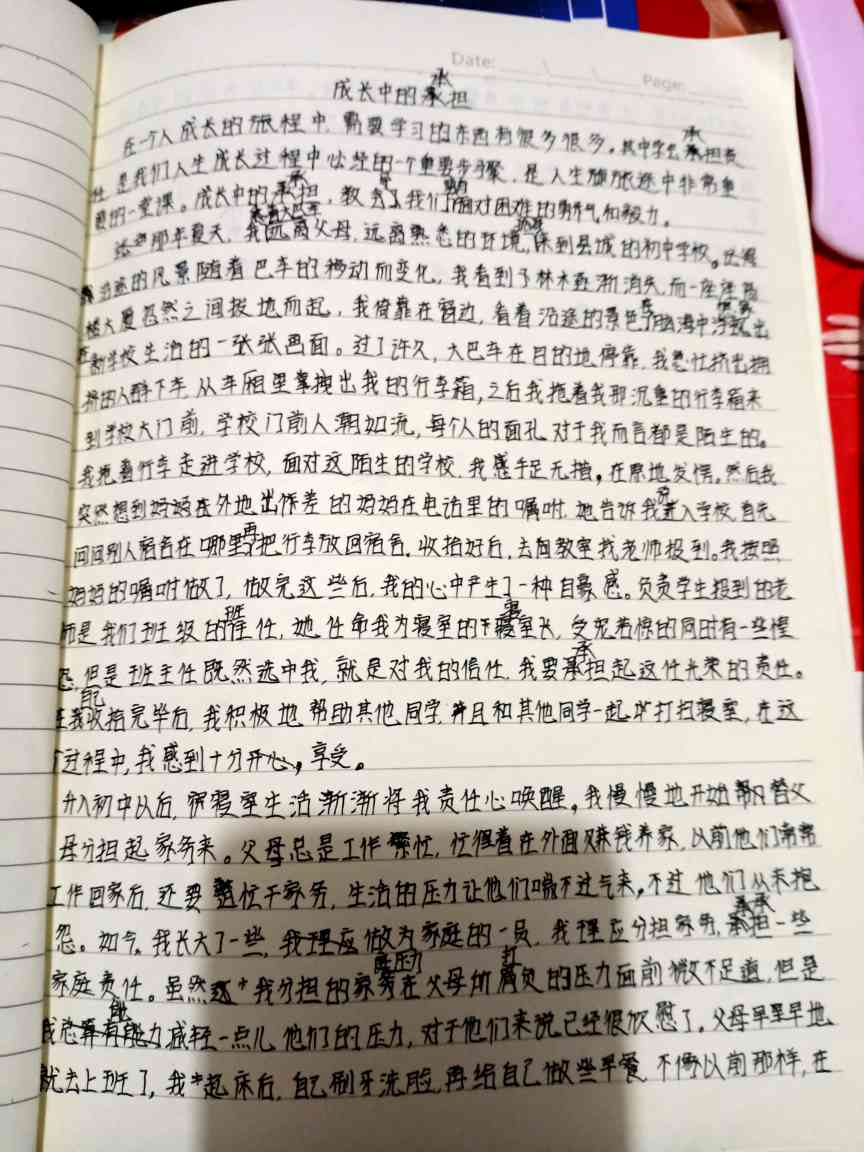 Date:
Page:
成长中的承担
在一个人成长的旅程中,需要学习的东西有很多很多。其中学会承担责
任是我们人生成长过程中必经的一个重要步骤,是人生旅途中非常重
要的一堂课。成长中的承担,教会了我们面对困难的勇气和毅力。
那年夏天,我远离父母,远离熟悉的环境,来到县城的初中学校。
沿途的风景随着巴车的移动而变化,我看到了林木逐渐消失,而一座座高
楼大厦忽然之间拔地而起,我倚靠在窗边,看着沿途的景色,脑海中浮现出
在新学校生活的一张张画面。过了许久,大巴车在目的地停靠,我急忙挤出拥
挤的人群下车,从车厢里拿拽出我的行李箱,之后我拖着我那沉重的行李箱来
到学校大门前,学校门前人潮如流,每个人的面孔对于我而言都是陌生的。
我拖着行李走进学校,面对这陌生的学校,我感手足无措,在原地发愣。然后我
突然想到妈妈在外地出差的妈妈在电话里的嘱咐,她告诉我进入学校,首先
问问别人宿舍在哪里,再把行李放回宿舍。收拾好后,去向教室找老师报到。我按照
妈妈的嘱咐做了,做完这些后,我的心中产生了一种自豪感。负责学生报到的老
师是我们班级的班任,她任命我为寝室的寝室长,受宠若惊的同时有一些惶
恐,但是班主任既然选中我,就是对我的信任,我要承担起这份光荣的责任。
在我收拾完毕后,我积极地帮助其他同学,并且和其他同学一起打扫寝室,在这
个过程中,我感到十分开心,享受。
升入初中以后,寝室生活渐渐将我责任心唤醒,我慢慢地开始帮父
母分担起家务来。父母总是工作繁忙,忙得着在外面赚钱养家,以前他们常常
工作回家后,还要忙于家务,生活的压力让他们喘不过气来,不过他们从未抱
怨。如今,我长大了一些,我理应做为家庭的一员,我理应分担家务,承担一些
家庭责任。虽然我分担的家务在父母所肩负的压力面前微不足道,但是
我总算有能力减轻一点儿他们的压力,对于他们来说已经很欣慰了。父母早早地
就去上班了,我起床后,自己刷牙洗脸,再给自己做些早餐,不像以前那样,在